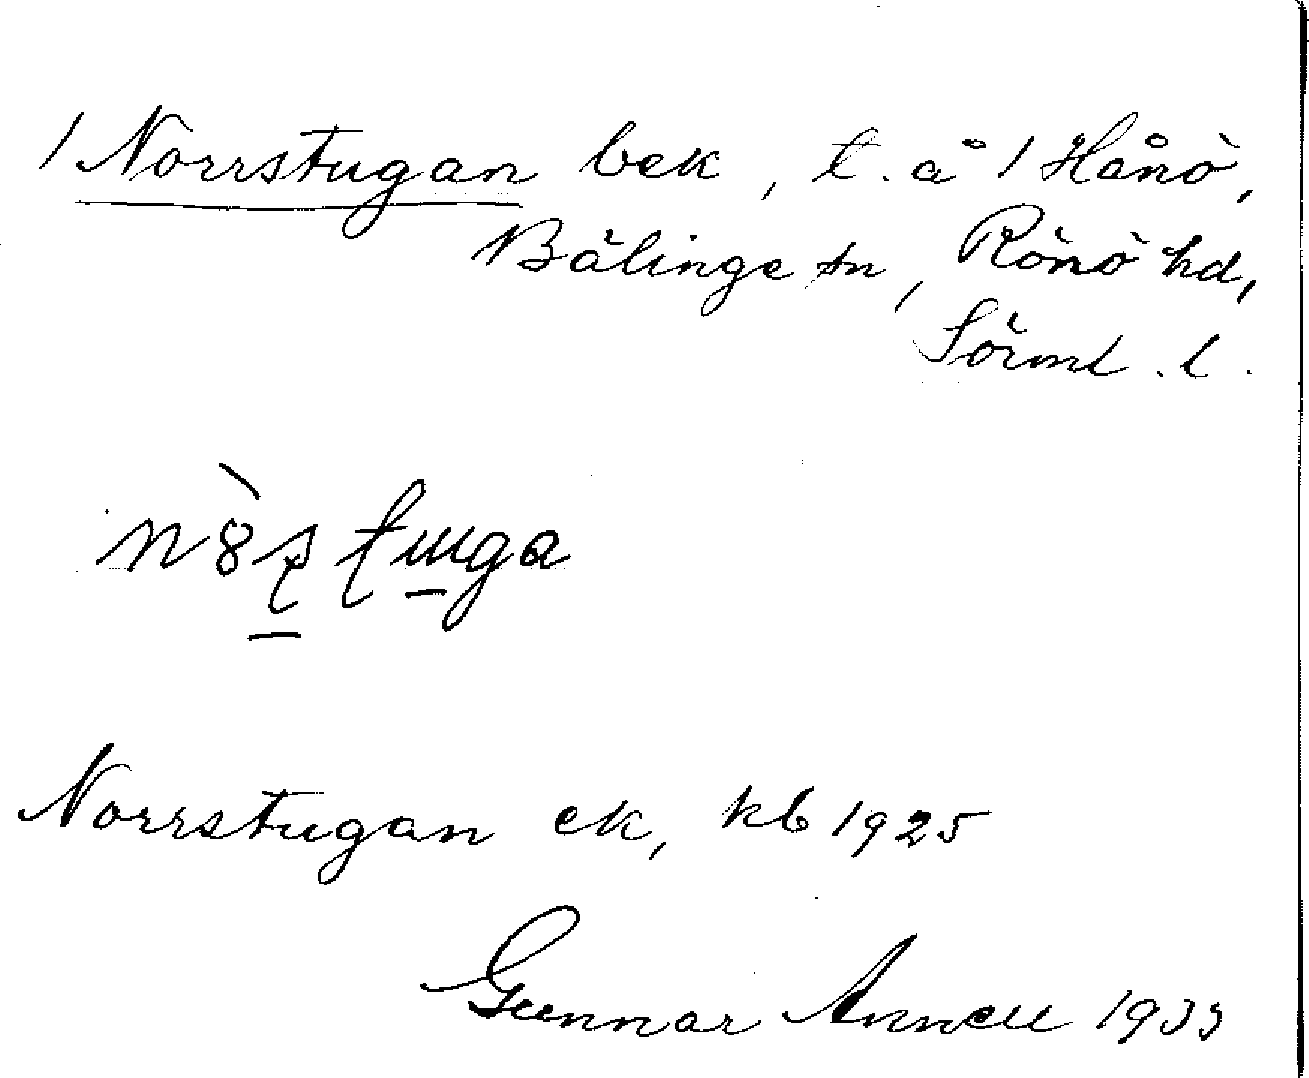 / Norrstugan bek, t. å / Hånö,
Bälinge sn, Rönö hd,
Sörml. l.
Norrstugan ek, kb 1925
Gunnar Annell 1933